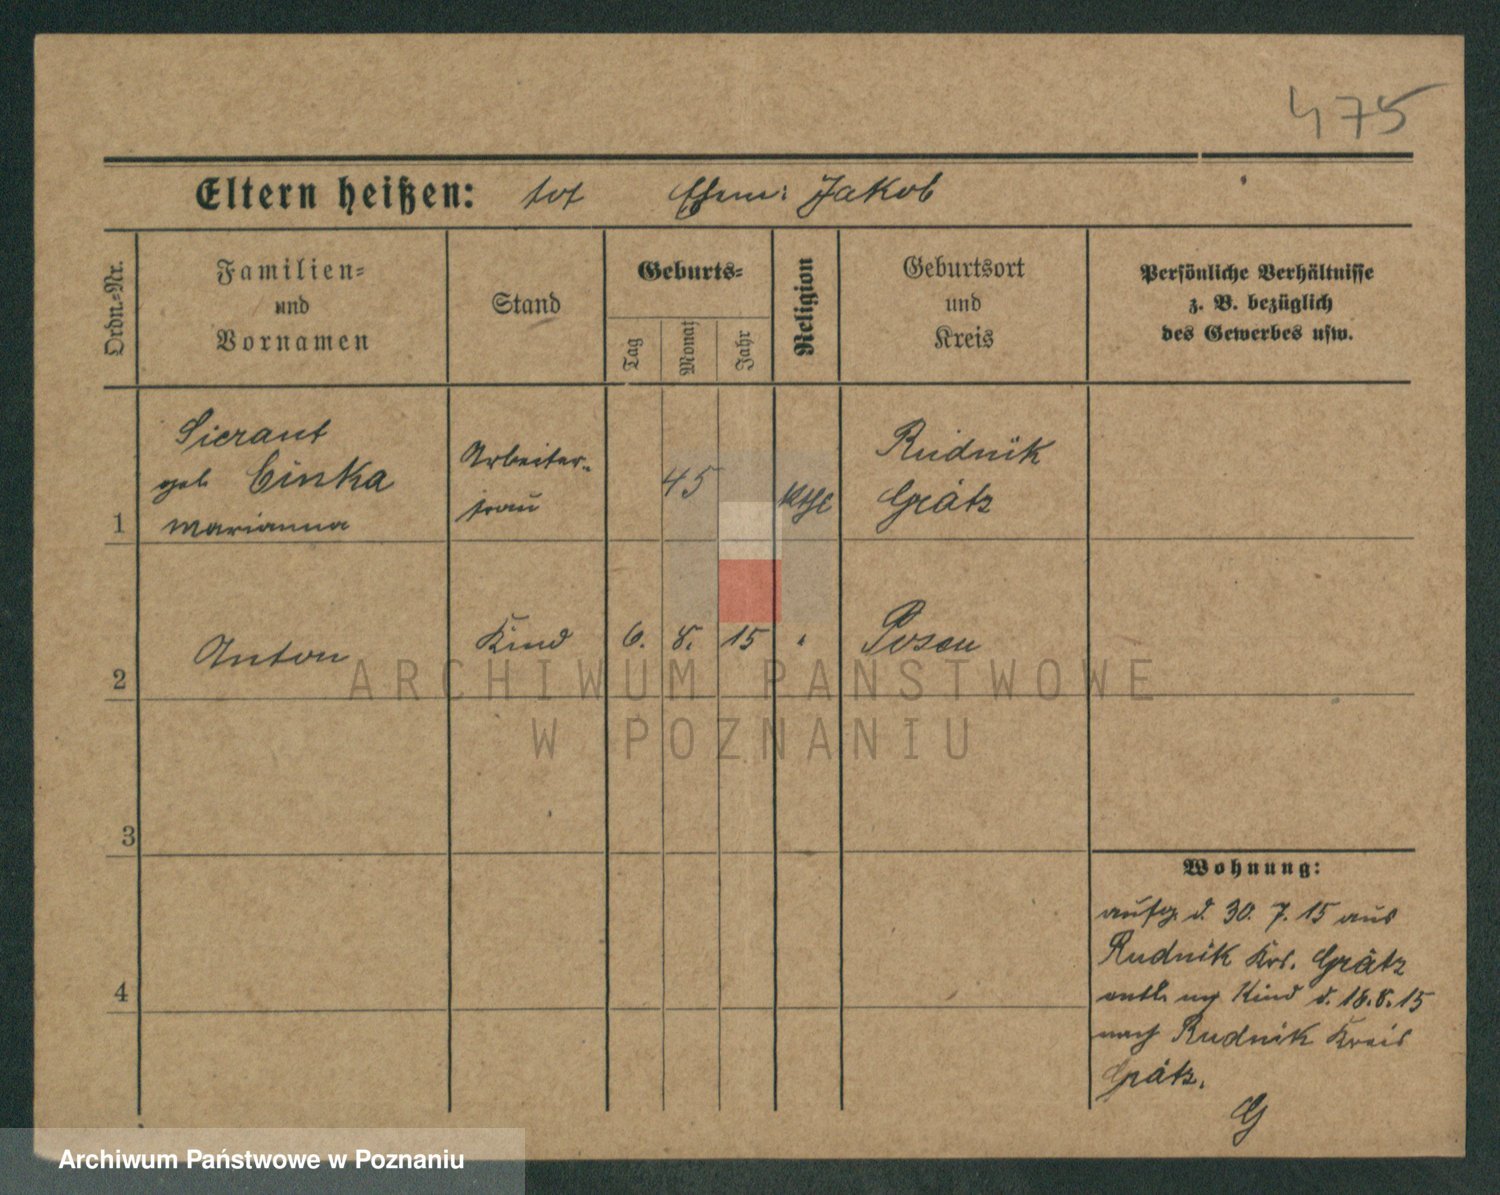 475
Eltern heißen: tot Ehem: Jakob
Ordn.-Nr.
Familien-
und
Vornamen
Stand
Geburts-
Tag
Monat
Jahr
Religion
Geburtsort
und
Kreis
Persönliche Verhältnisse
z. B. bezüglich
des Gewerbes usw.
1
Sierant
geb Cinka
Marianna
Arbeiter-
frau
45
kth
Rudnik
Grätz
2
Anton
Kind
6. 8. 15
Posen
3
4
Wohnung:
aufg. d. 30. 7. 15 aus
Rudnik Krs. Grätz
entl. Kind d. 18. 8. 15
nach Rudnik Kreis
Grätz.
G
ARCHIWUM PAŃSTWOWE
W POZNANIU
Archiwum Państwowe w Poznaniu